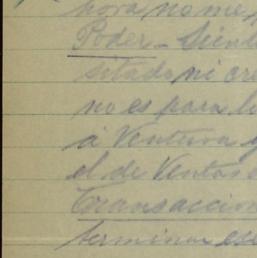 hora no me
Poder – Siend
sitado ni cre
no es para l
á Ventura y
el de Ventas
Transaccion
terminar ese